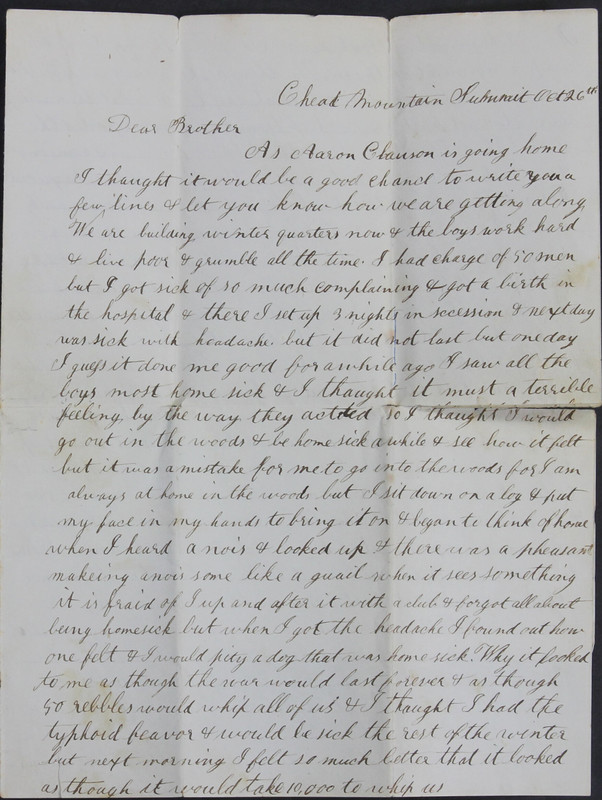 Cheat Mountain Summit Oct 26th
Dear Brother
As Aaron Clauson is going home
I thought it would be a good chand to write you a
few lines & let you know how we are getting along
We are building winter quarters now & the boys work hard
& live poor & grumble all the time. I had charge of 50 men
but I got sick of so much complaining & got a birth in
the hospital & there I set up 3 nights in secession & next day
was sick with headache. but it did not last but one day
I guess it done me good for awhile ago I saw all the
boys most home sick & I thought it must a terrible
feeling by the way they acted so I thought I would
go out in the woods & be home sick a while & see how it felt
but it was a mistake for me to go into the woods for I am
always at home in the woods but I sit down on a log & put
my face in my hands to bring it on & began to think of home
when I heard a nois & looked up & there was a pheasant
makeing a nois some like a quail when it sees something
it is fraid of I up and after it with a club & forgot all about
being homesick but when I got the headache I found out how
one felt & I would pity a dog that was home sick. Why it looked
to me as though the war would last forever & as though
50 rebbles would whip all of us & I thought I had the
typhoid feavor & would be sick the rest of the winter
but next morning I felt so much better that it looked
as though it would take 10,000 to whip us